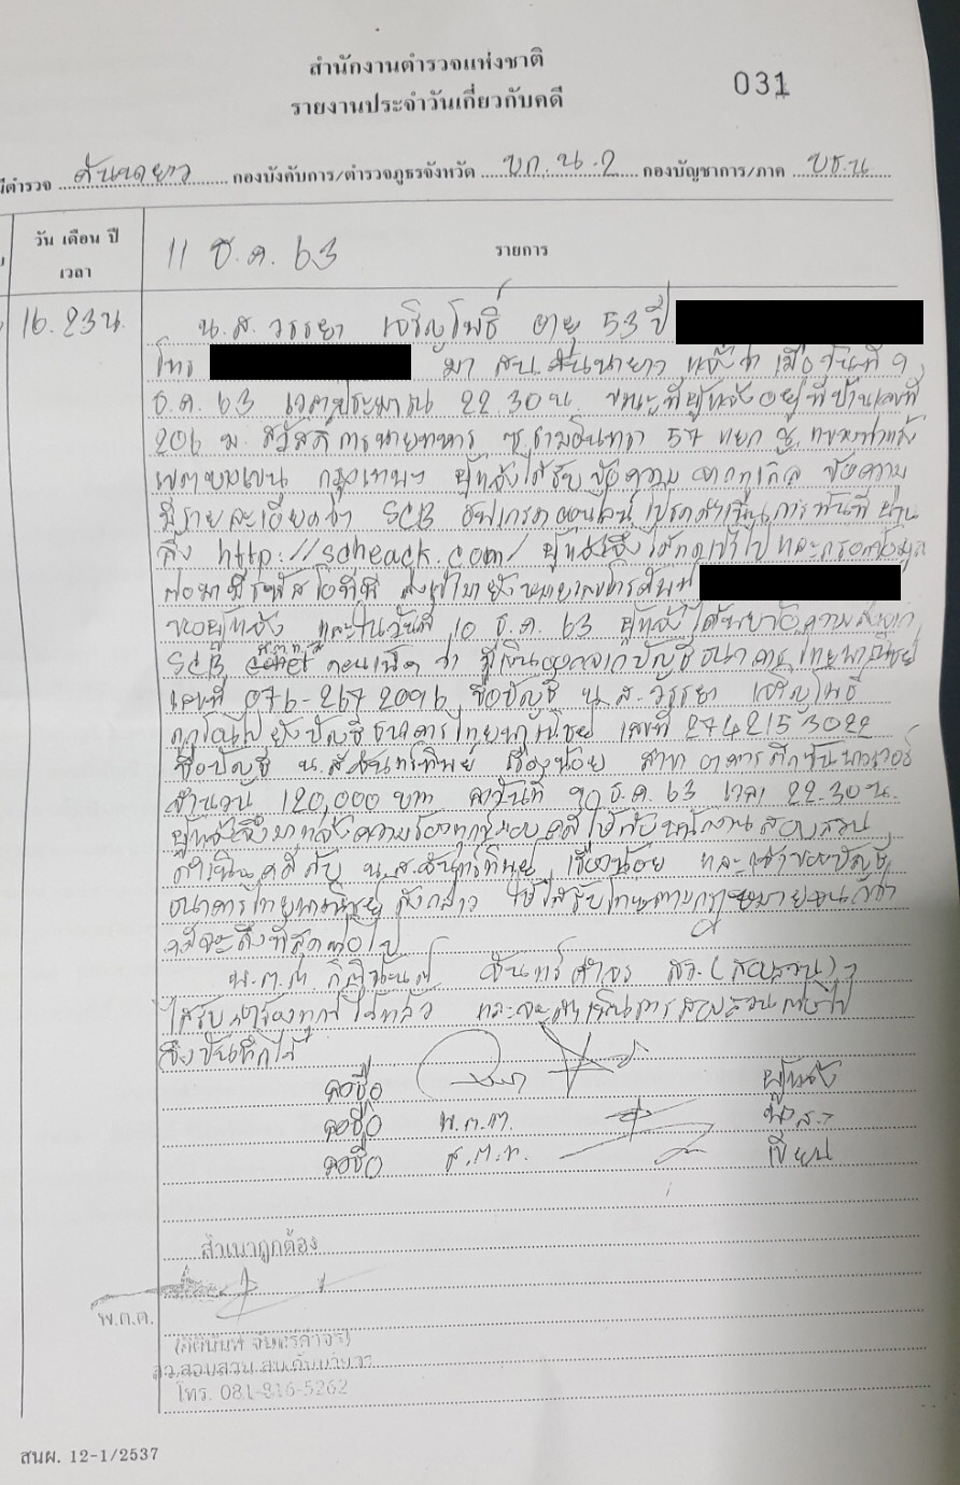 สำนักงานตำรวจแห่งชาติ
รายงานประจำวันเกี่ยวกับคดี
031
ตำรวจ คันนายาว กองบังคับการ/ตำรวจภูธรจังหวัด บก.น.2 กองบัญชาการ/ภาค บช.น
วัน เดือน ปี
เวลา
11 ธ.ค. 63
รายการ
16.23น.
น.ส.วรรยา เจริญโพธิ์ อายุ 53 ปี
โทร มา สน.คันนายาว แจ้งว่า เมื่อวันที่ 9
ธ.ค. 63 เวลาประมาณ 22.30 น. ขณะที่ผู้แจ้งอยู่ที่บ้านเลขที่
206 ม. สวัสดิการนายทหาร ซ.รามอินทรา 57 แยก แขวงท่าแร้ง
เขตบางเขน กรุงเทพฯ ผู้แจ้งได้รับข้อความ ข้อความ
มีรายละเอียดว่า SCB อัพเกรดออนไลน์ โปรดดำเนินการทันที ผ่าน
ลิ้ง http://scheack.com/ ผู้แจ้งจึงได้กดเข้าไปและกรอกข้อมูล
ต่อมามีรหัสโอทีพี ส่งเข้ามายังหมายเลขโทรศัพท์
ของผู้แจ้ง และในวันที่ 10 ธ.ค. 63 ผู้แจ้งได้รับข้อความ
SCB ว่า มีเงินออกจากบัญชีธนาคารไทยพาณิชย์
เลขที่ 076-267 2096 ชื่อบัญชี น.ส.วรรยา เจริญโพธิ์
ถูกโอนไปยังบัญชีธนาคารไทยพาณิชย์ เลขที่ 2742153022
ชื่อบัญชี น.ส.จันทร์ทิพย์ เรืองน้อย สาขา อาคาร
จำนวน 120,000 บาท ธ.ค. 63 เวลา 22.30 น.
ผู้แจ้งจึงมาแจ้งความร้องทุกข์มอบคดีให้กับพนักงานสอบสวน
ดำเนินคดีกับ น.ส.จันทร์ทิพย์ เรืองน้อย และเจ้าของบัญชี
ธนาคารไทยพาณิชย์ ดังกล่าว ให้ได้รับโทษตามกฎหมายจนกว่า
คดีจะถึงที่สุดต่อไป
พ.ต.ต. กิตินันท์ จันทร์ดำจร สว.(สอบสวน)ฯ
ได้รับคำร้องทุกข์ไว้แล้ว และจะดำเนินการสอบสวนต่อไป
จึงบันทึกไว้
ลงชื่อ ผู้แจ้ง
ลงชื่อ พ.ต.ต.
ลงชื่อ ส.ต.ท. เขียน
สำเนาถูกต้อง
พ.ต.ต.
(กิตินันท์ จันทร์ดำจร)
สว.สอบสวน สน.คันนายาว
โทร. 081-816-5262
สนผ. 12-1/2537